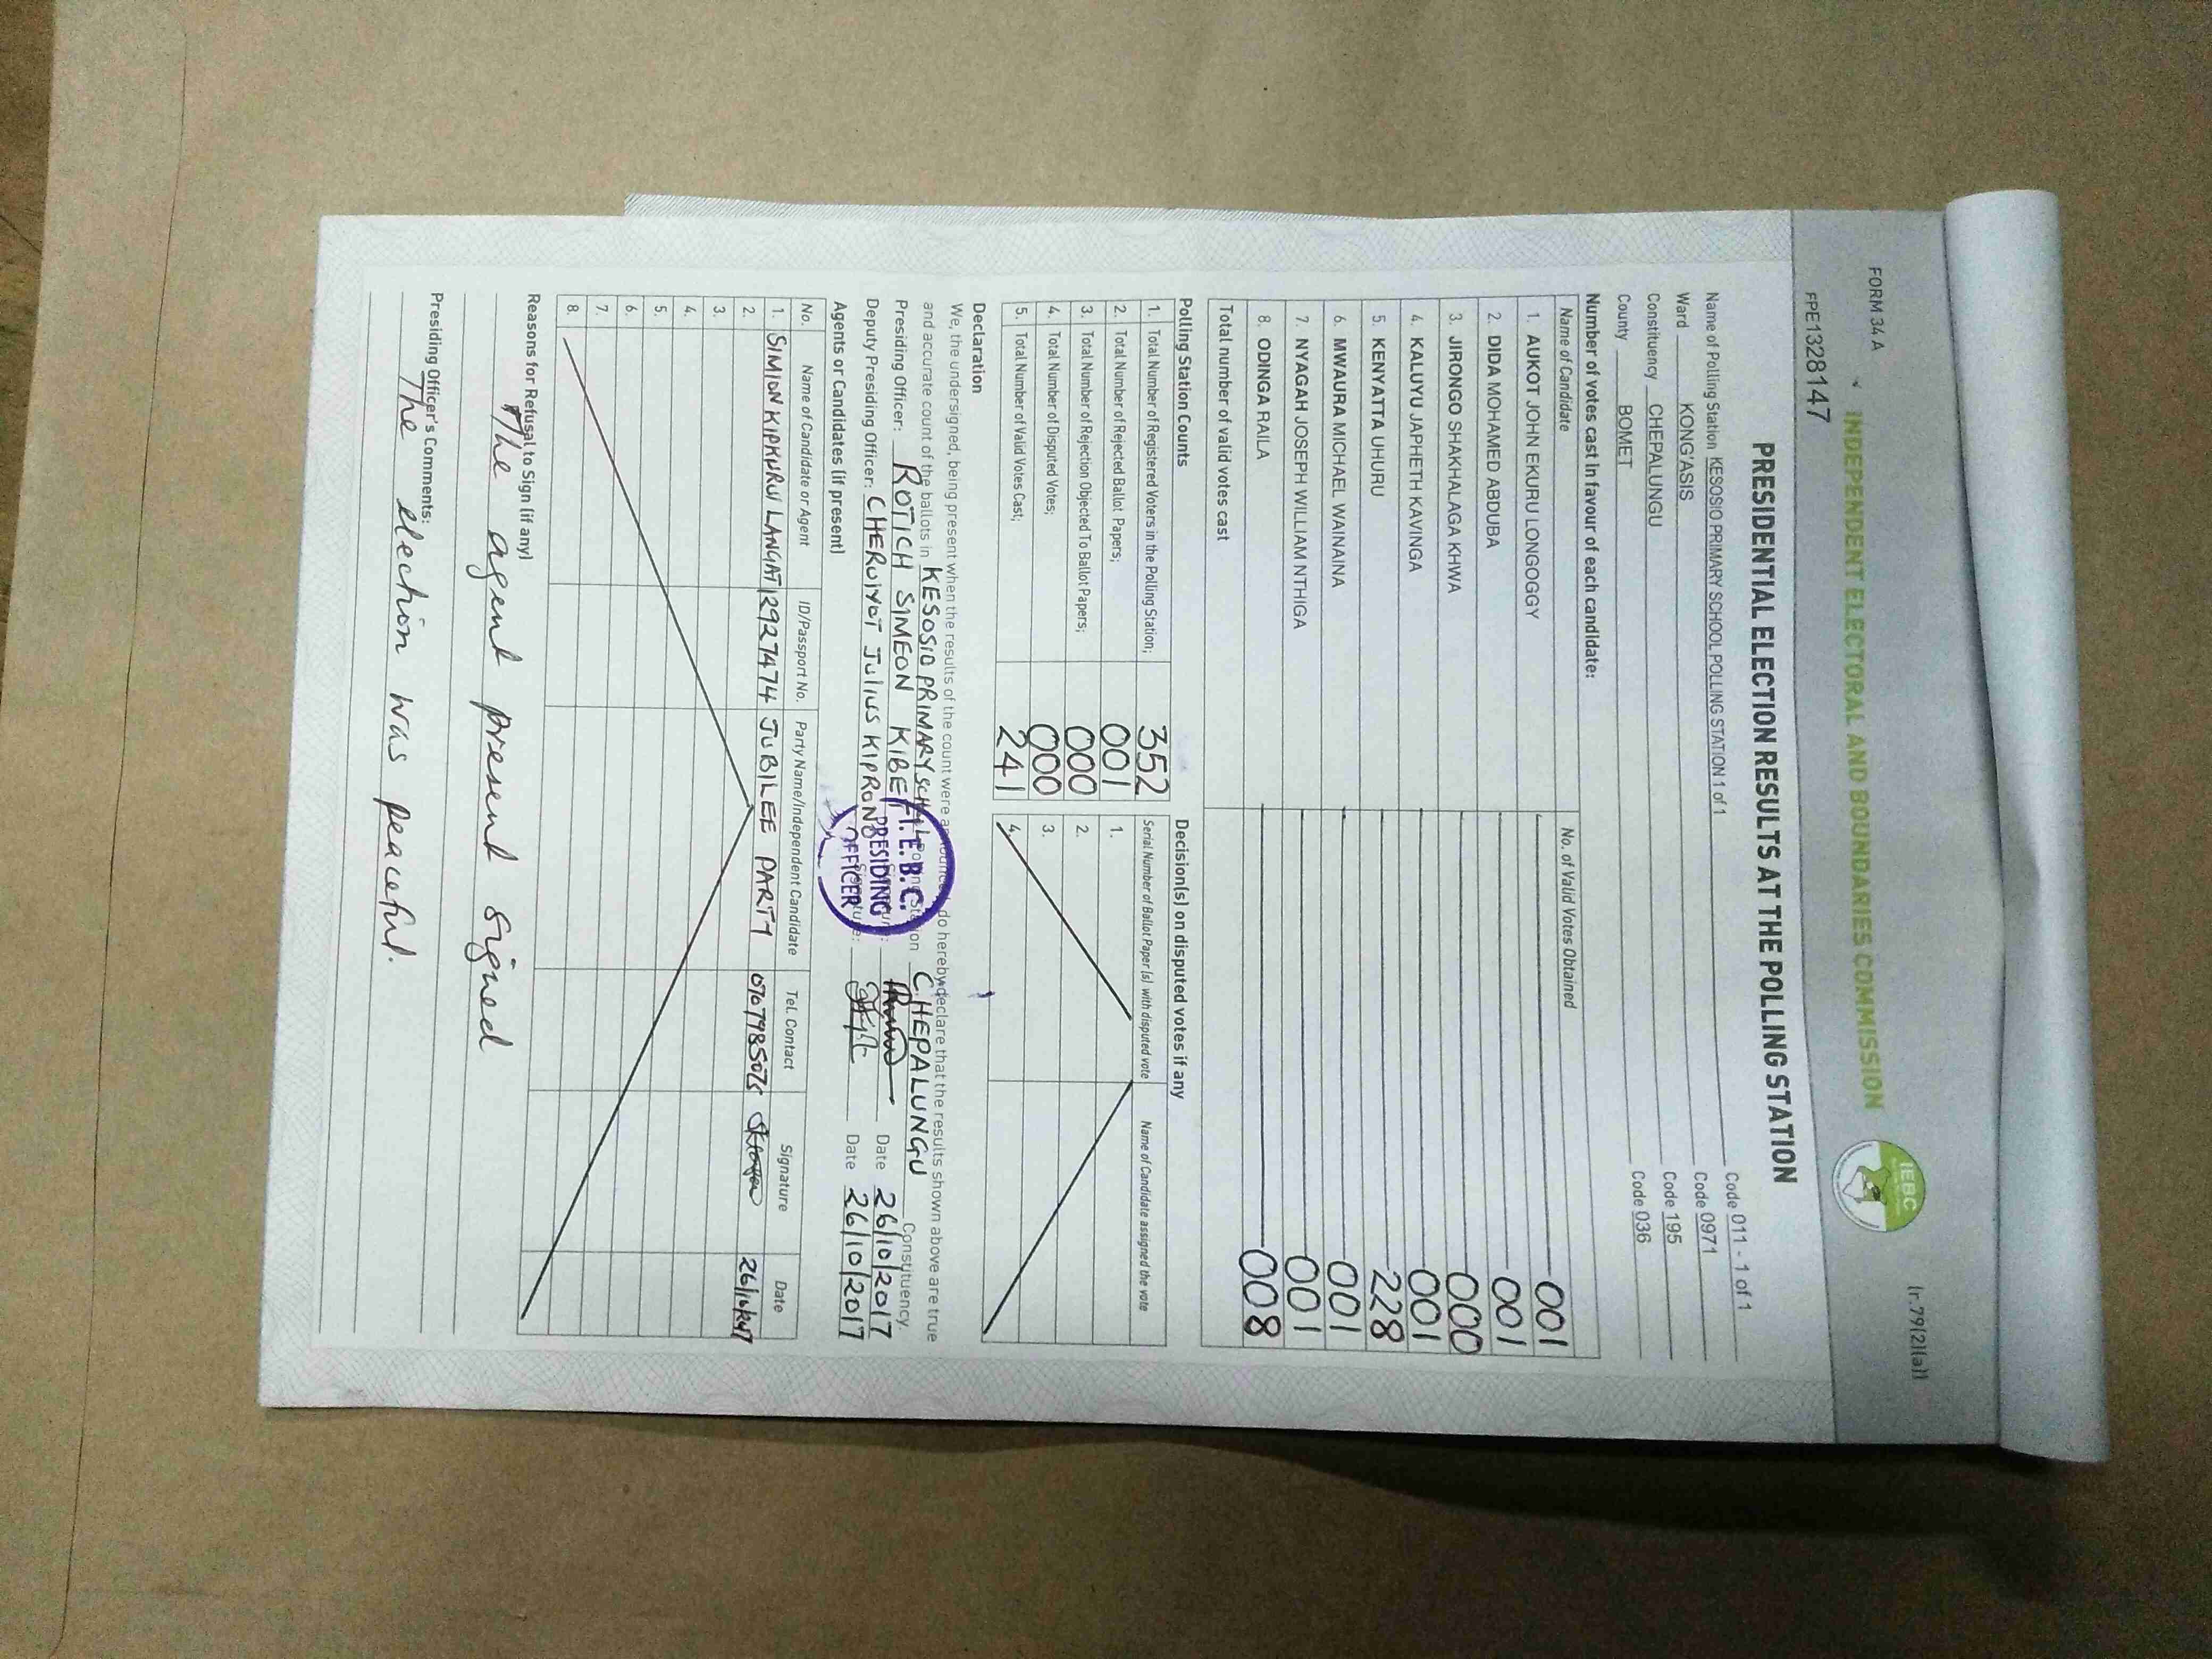 FORM 34 A
(r.79(2)(a))
INDEPENDENT ELECTORAL AND BOUNDARIES COMMISSION
IEBC
FPE1328147
PRESIDENTIAL ELECTION RESULTS AT THE POLLING STATION
Name of Polling Station KESOSIO PRIMARY SCHOOL POLLING STATION 1 of 1 Code 011 - 1 of 1
Ward KONG'ASIS Code 0971
Constituency CHEPALUNGU Code 195
County BOMET Code 036
Number of votes cast in favour of each candidate:
Name of Candidate No. of Valid Votes Obtained
1. AUKOT JOHN EKURU LONGOGGY 001
2. DIDA MOHAMED ABDUBA 001
3. JIRONGO SHAKHALAGA KHWA 000
4. KALUYU JAPHETH KAVINGA 001
5. KENYATTA UHURU 228
6. MWAURA MICHAEL WAINAINA 001
7. NYAGAH JOSEPH WILLIAM NTHIGA 001
8. ODINGA RAILA 008
Total number of valid votes cast
Polling Station Counts
1. Total Number of Registered Voters in the Polling Station; 352
2. Total Number of Rejected Ballot Papers; 001
3. Total Number of Rejection Objected To Ballot Papers; 000
4. Total Number of Disputed Votes; 000
5. Total Number of Valid Votes Cast; 241
Decision(s) on disputed votes if any
Serial Number of Ballot Paper (s) with disputed vote Name of Candidate assigned the vote
1.
2.
3.
4.
Declaration
We, the undersigned, being present when the results of the count were announced, do hereby declare that the results shown above are true
and accurate count of the ballots in KESOSIO PRIMARY SCHOOL Polling Station CHEPALUNGU Constituency.
Presiding Officer: ROTICH SIMEON KIBET Signature: Date 26/10/2017
Deputy Presiding Officer: CHERUIYOT JULIUS KIPRONO Signature: Date 26/10/2017
I.E.B.C.
PRESIDING
OFFICER
Agents or Candidates (if present)
No. Name of Candidate or Agent ID/Passport No. Party Name/Independent Candidate Tel. Contact Signature Date
1. SIMION KIPKURUI LANGAT 12927474 JUBILEE PARTY 0707985075 26/10/2017
2.
3.
4.
5.
6.
7.
8.
Reasons for Refusal to Sign (if any)
The agent present signed
Presiding Officer's Comments:
The election was peaceful.